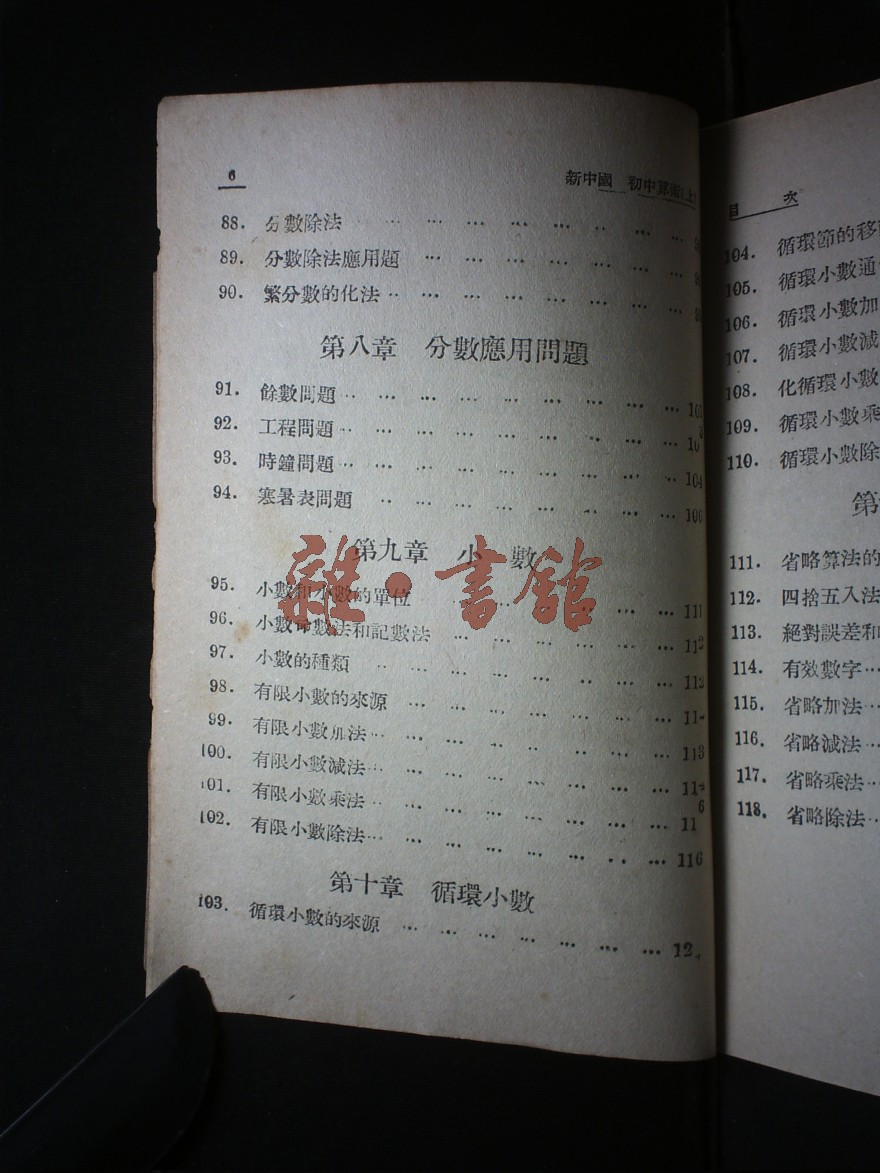 6 新中國 初中算術(上)
88. 分數除法
89. 分數除法應用題
90. 繁分數的化法
第八章 分數應用問題
91. 餘數問題
92. 工程問題
93. 時鐘問題 104
94. 寒暑表問題 106
第九章 小數
95. 小數和小數的單位 111
96. 小數命數法和記數法 112
97. 小數的種類 112
98. 有限小數的來源
99. 有限小數加法 113
100. 有限小數減法
101. 有限小數乘法
102. 有限小數除法 116
第十章 循環小數
103. 循環小數的來源
雜·書館
目 次
104. 循環節的移
105. 循環小數通
106. 循環小數加
107. 循環小數減
108. 化循環小數
109. 循環小數乘
110. 循環小數除
第
111. 省略算法的
112. 四捨五入法
113. 絕對誤差和
114. 有效數字
115. 省略加法
116. 省略減法
117. 省略乘法
118. 省略除法